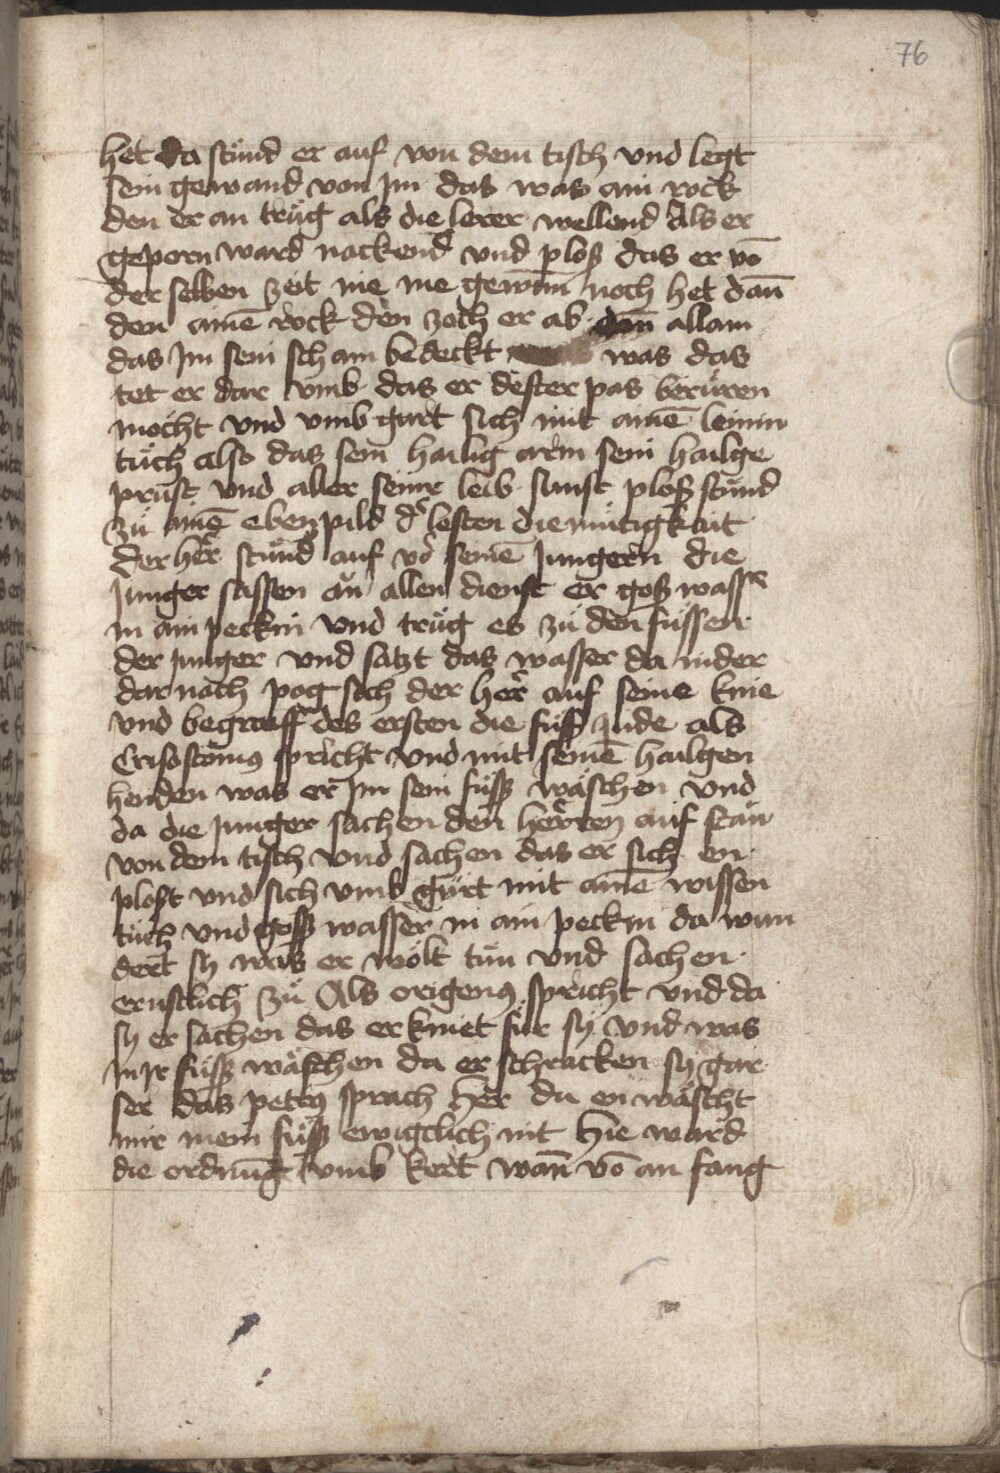 76
het da stůnd er auf von dem tisch vnd legt
sein gewand von jm das was ain rock
den er an trůg als die lerer wellend als er
gepern ward nackend vnd ploß das er vō
der selben zeit nie me gewan̄ noch het dan̄
den ainē rock den zoch er ab dan̄ allain
das jm sein scham bedeckt was das
tet er dar vmb das er dester pas berůren
mocht vnd vmb gurt sich mit ainē leinin
tůch also das sein hailig arm sein hailge
prust vnd aller seinr leib sunst ploß stůnd
zů ainē ebenpild dˀ lesten diemůtigkait
der her̄ stůnd auf vō seinē jungern die
junger sassen an allen dienst er goß wassˀ
in ain peckin vnd trůg es zů den fůssen
der junger vnd satzt das wasser da nider
dar nach pog sich der her̄ auf seine knie
vnd begraiff des ersten die fůß jude als
Crisostomꝰ spricht vnd mit seinē hailgen
henden was er jm sein fůß wäschen vnd
da die junger sachen den herren auf stan
von dem tisch vnd sachen das er sich en
ploßt vnd sich vmb gürt mit ainē wissen
tůch vnd goß wasser in ain peckin da wun
dert sy was er wölt tůn vnd sachen
ernstlich zů Als origenꝰ spricht vnd da
sy er sachen das er kniet für sy vnd was
in jr fůß wäschen da er schracken sy gar
ser das petrꝰ sprach her̄ du en wäscht
mir mein fůß ewigclich nit Hie ward
die ordnung vmb kert wan̄ vō an fang